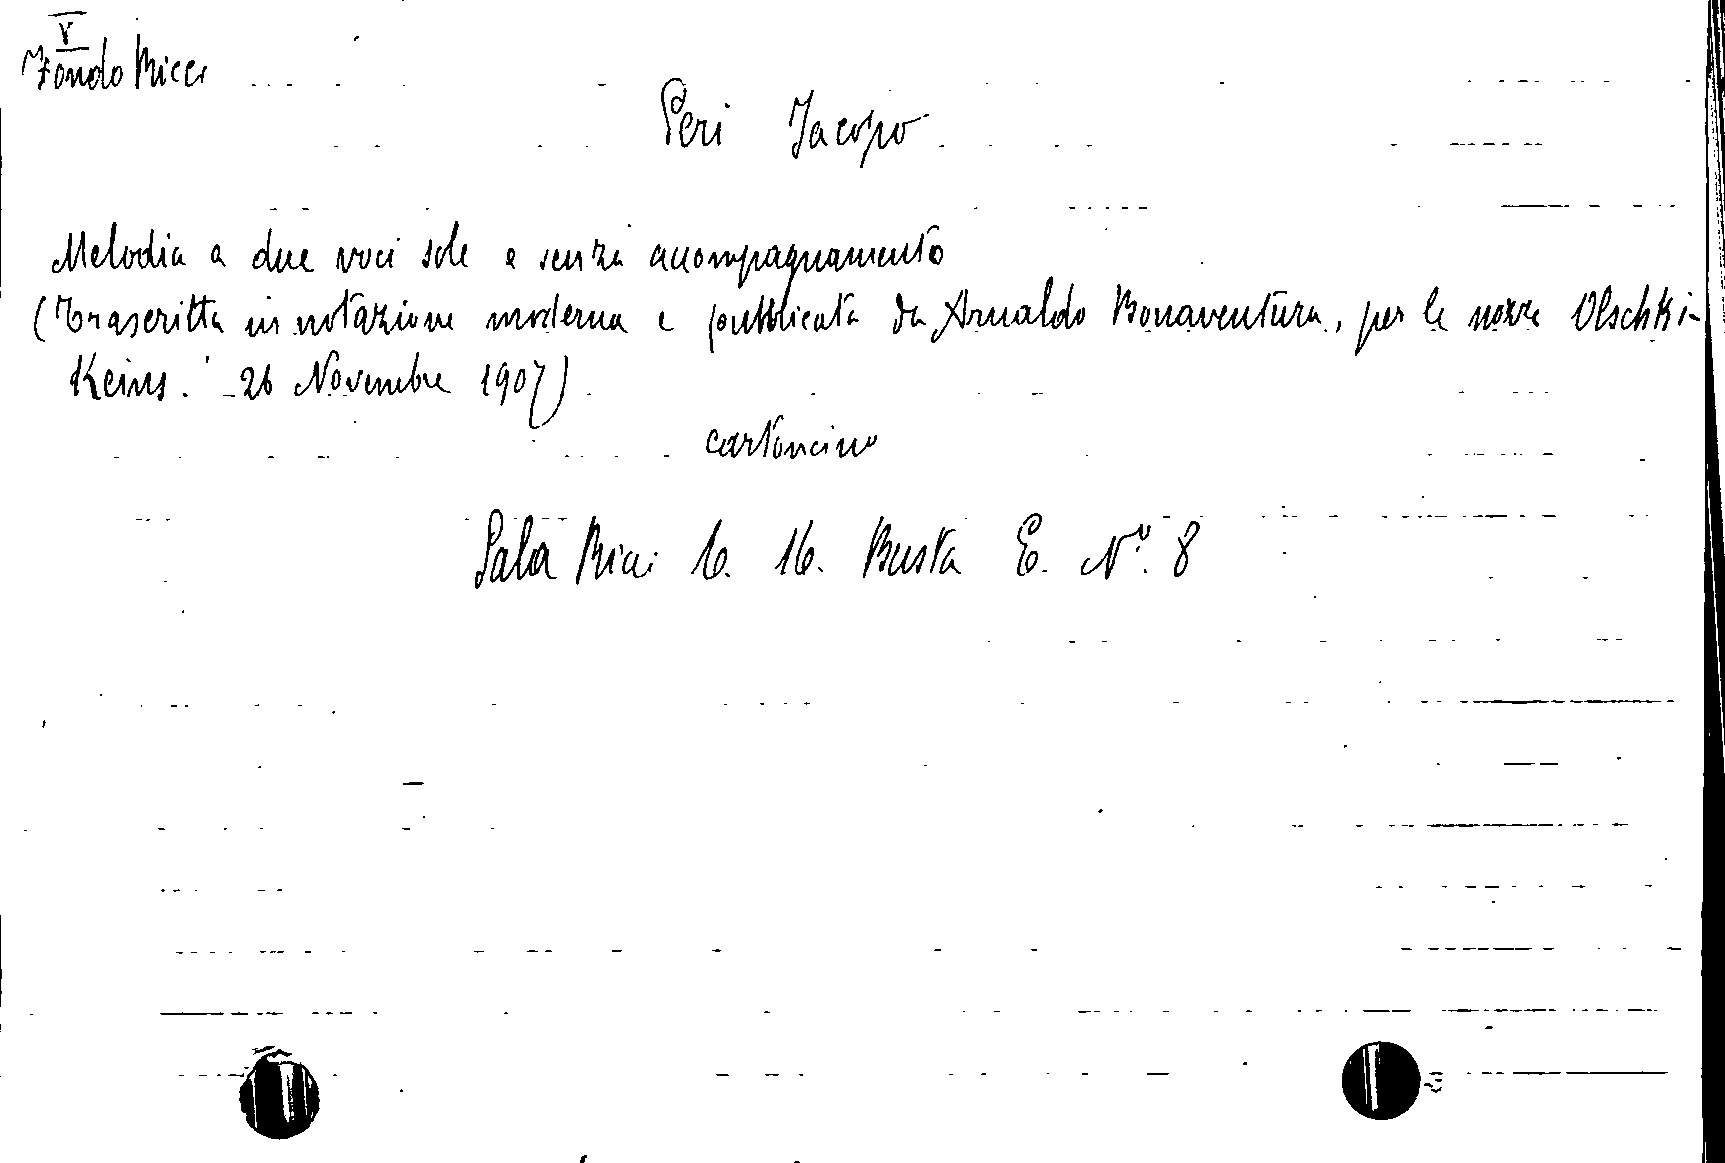 V
Fondo Ricci
Peri Jacopo
Melodia a due voci sole e senza accompagnamento
(Trascritta in notazione moderna e pubblicata da Arnaldo Bonaventura, per le nozze Olschki-
Keins. 26 Novembre 1907)
cartoncino
Sala Ricci 6. 16. Busta E. Nº 8